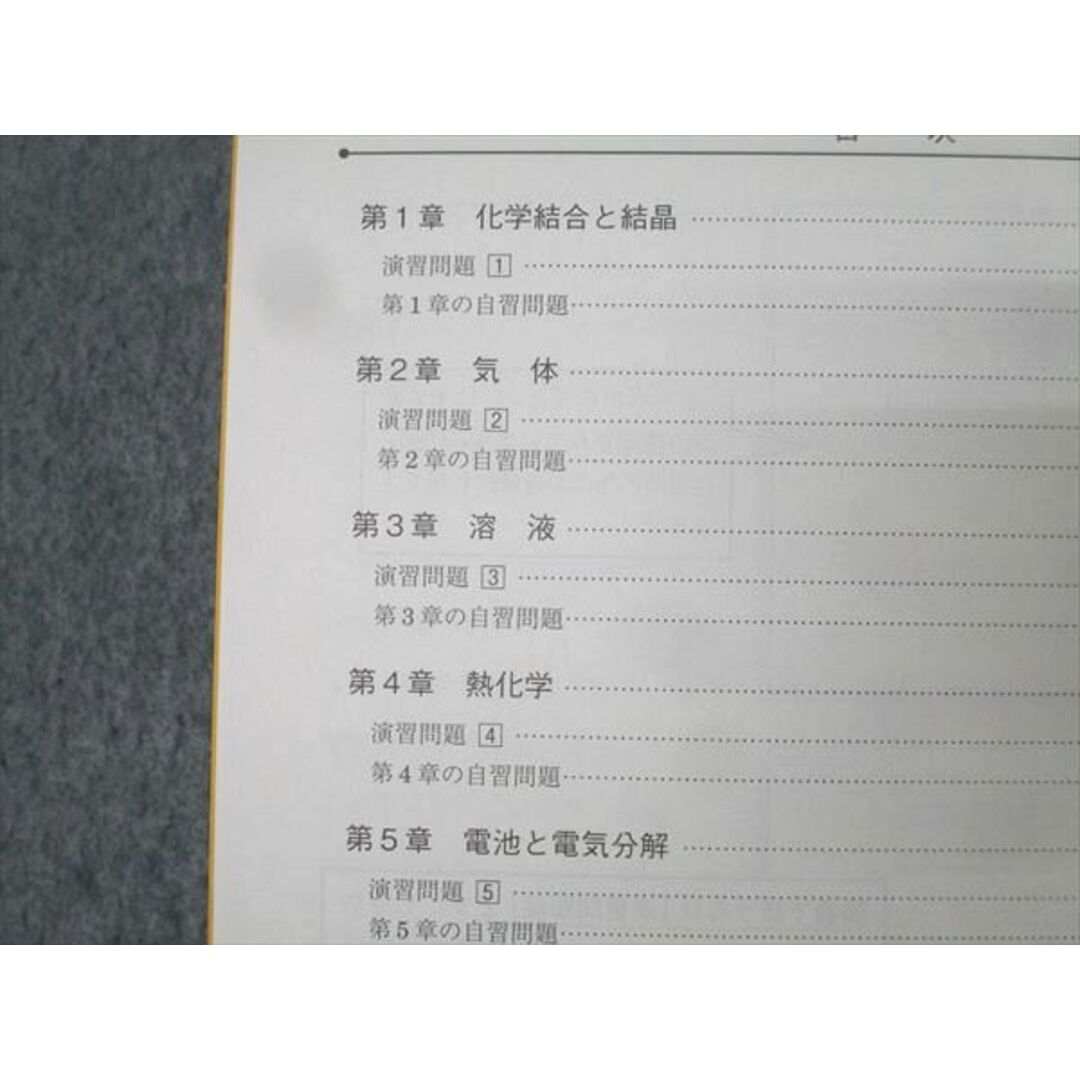 目　次
第１章　化学結合と結晶
演習問題 1
第１章の自習問題
第２章　気　体
演習問題 2
第２章の自習問題
第３章　溶　液
演習問題 3
第３章の自習問題
第４章　熱化学
演習問題 4
第４章の自習問題
第５章　電池と電気分解
演習問題 5
第５章の自習問題